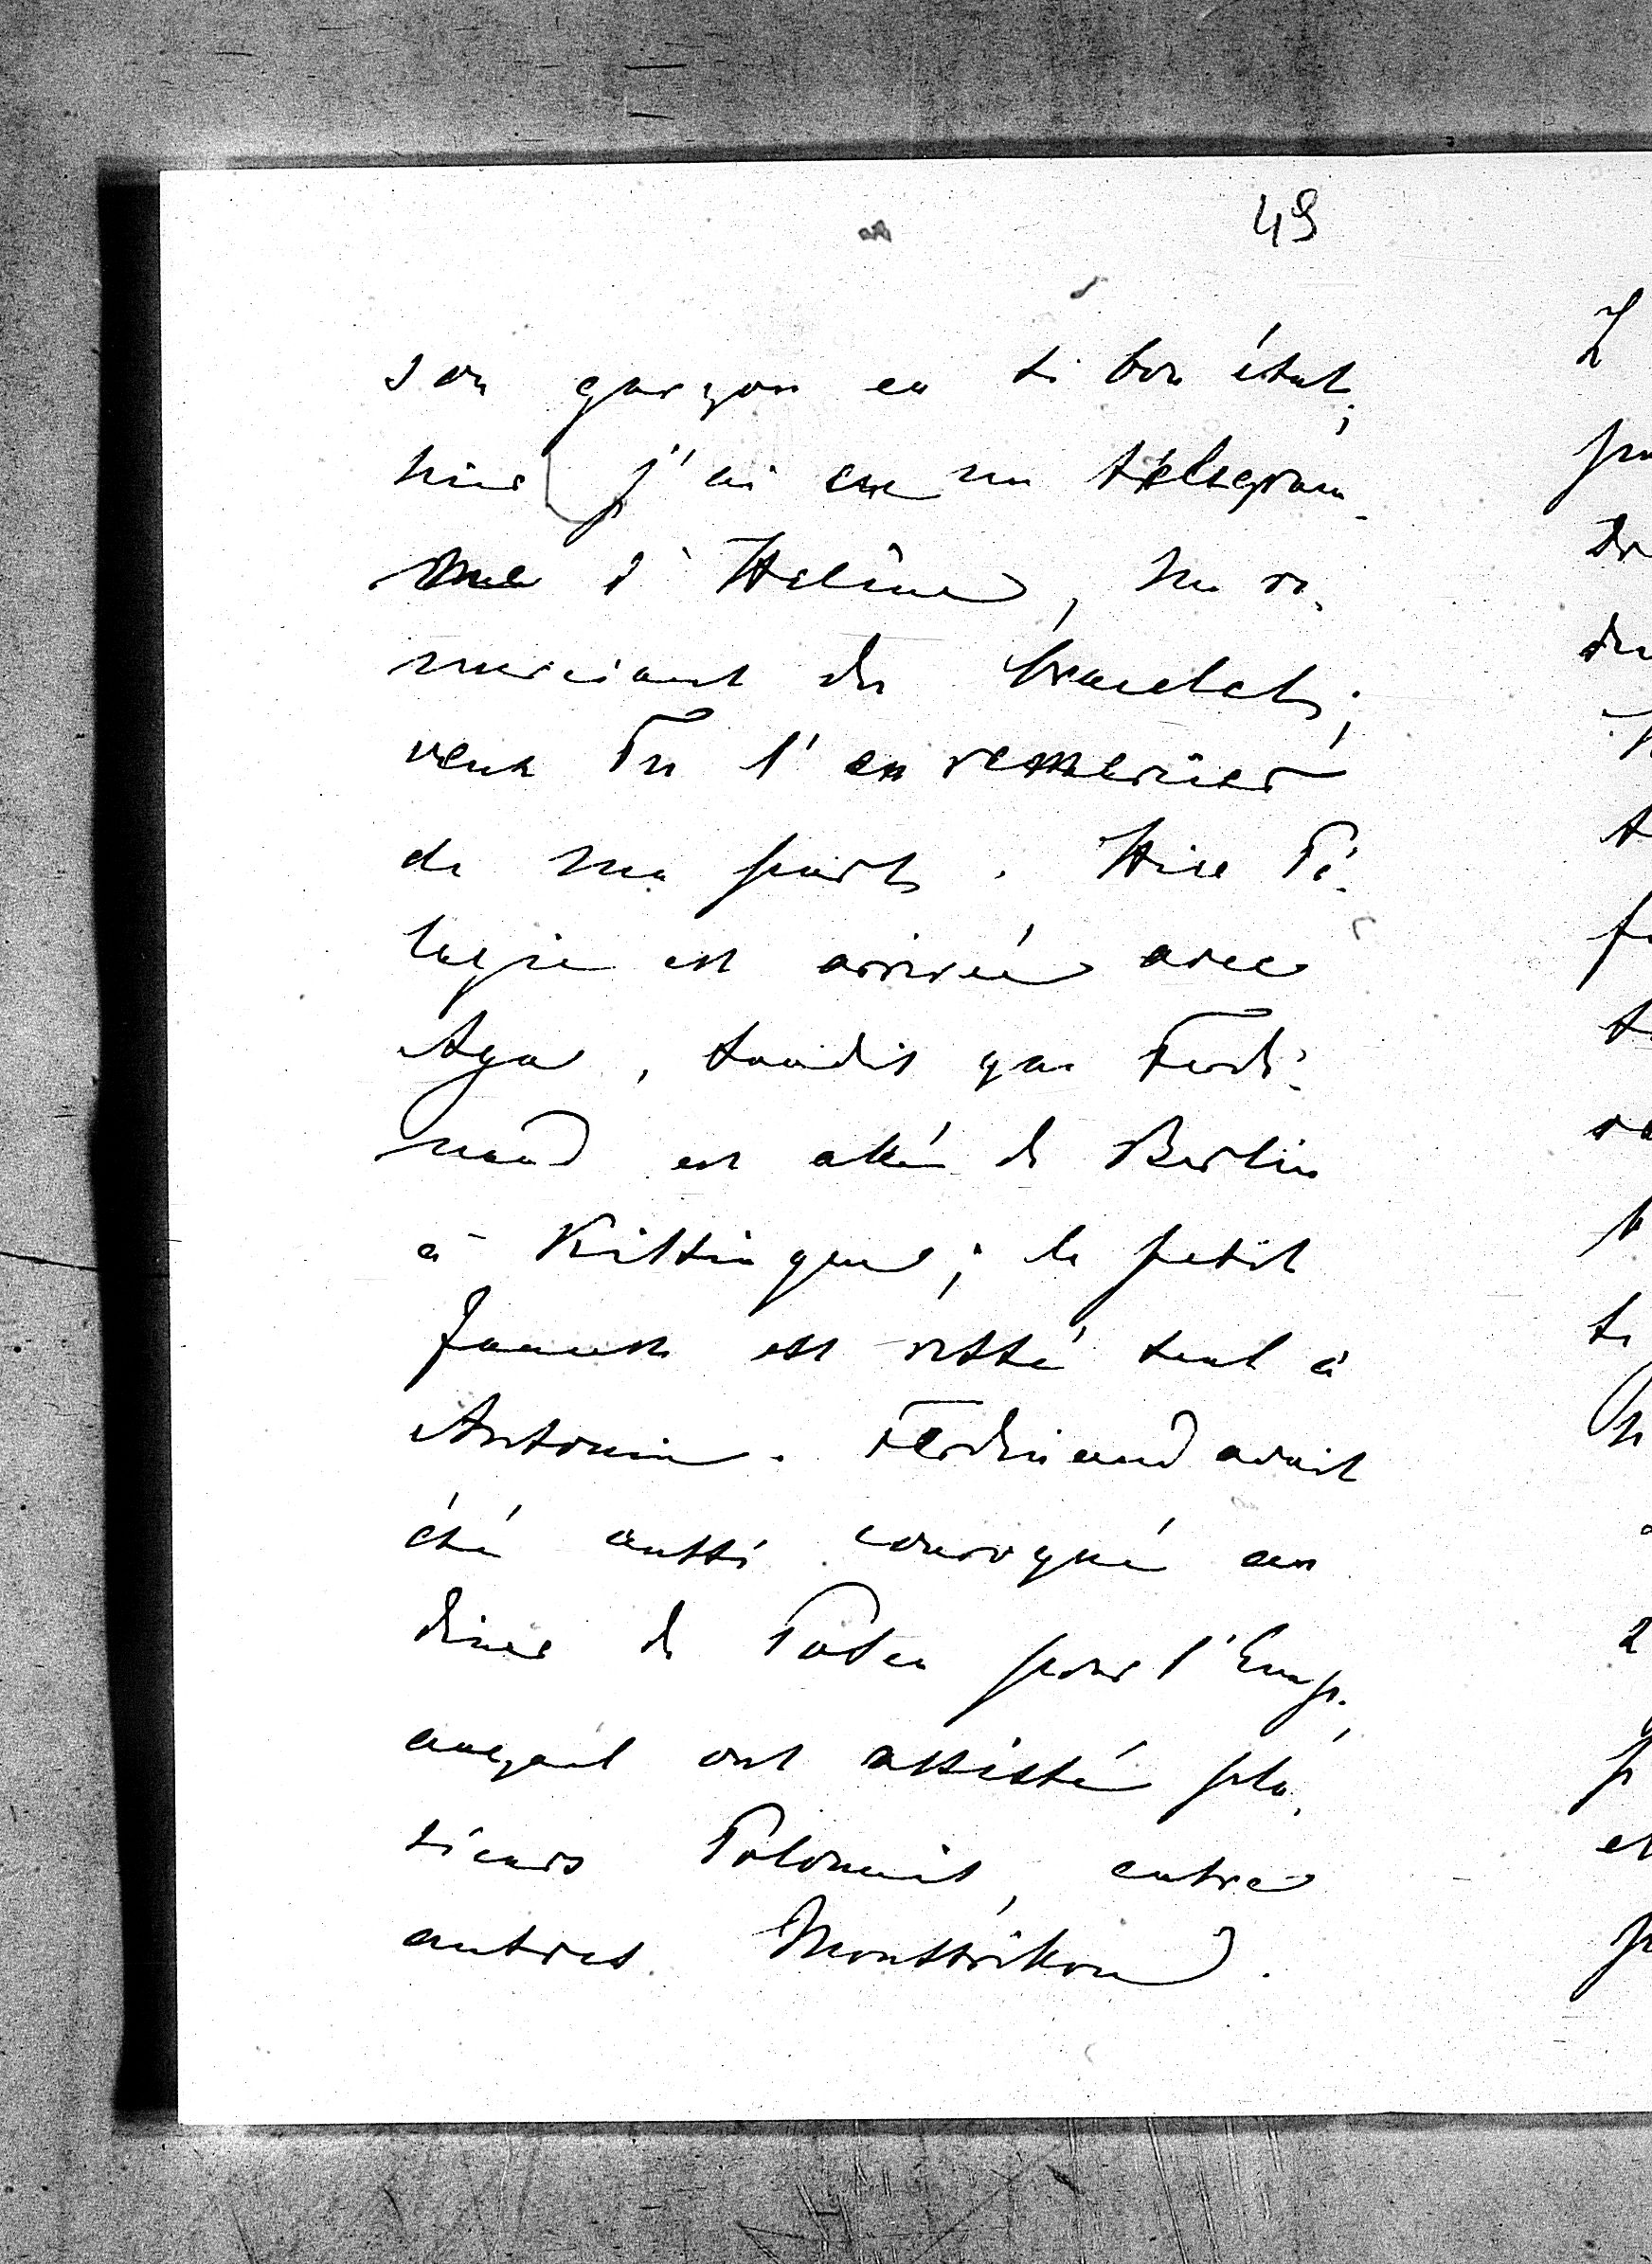 49
son garçon en si bon état;
hier j'ai eu un télegram-
me d'Hélène, me re-
merciant du bracelet;
veux Tu l'en remercier
de ma part. Hier Pé-
lagie est arrivée avec
Aga, tandis que Ferdi-
nand est allé de Berlin
à Kissingue; le petit
Janush est resté seul à
Antonin. Ferdinand avait
été aussi convoqué au
diner de Posen pour l'Emp.,
auquel ont assisté plu-
sieurs Polonais, entre
autres